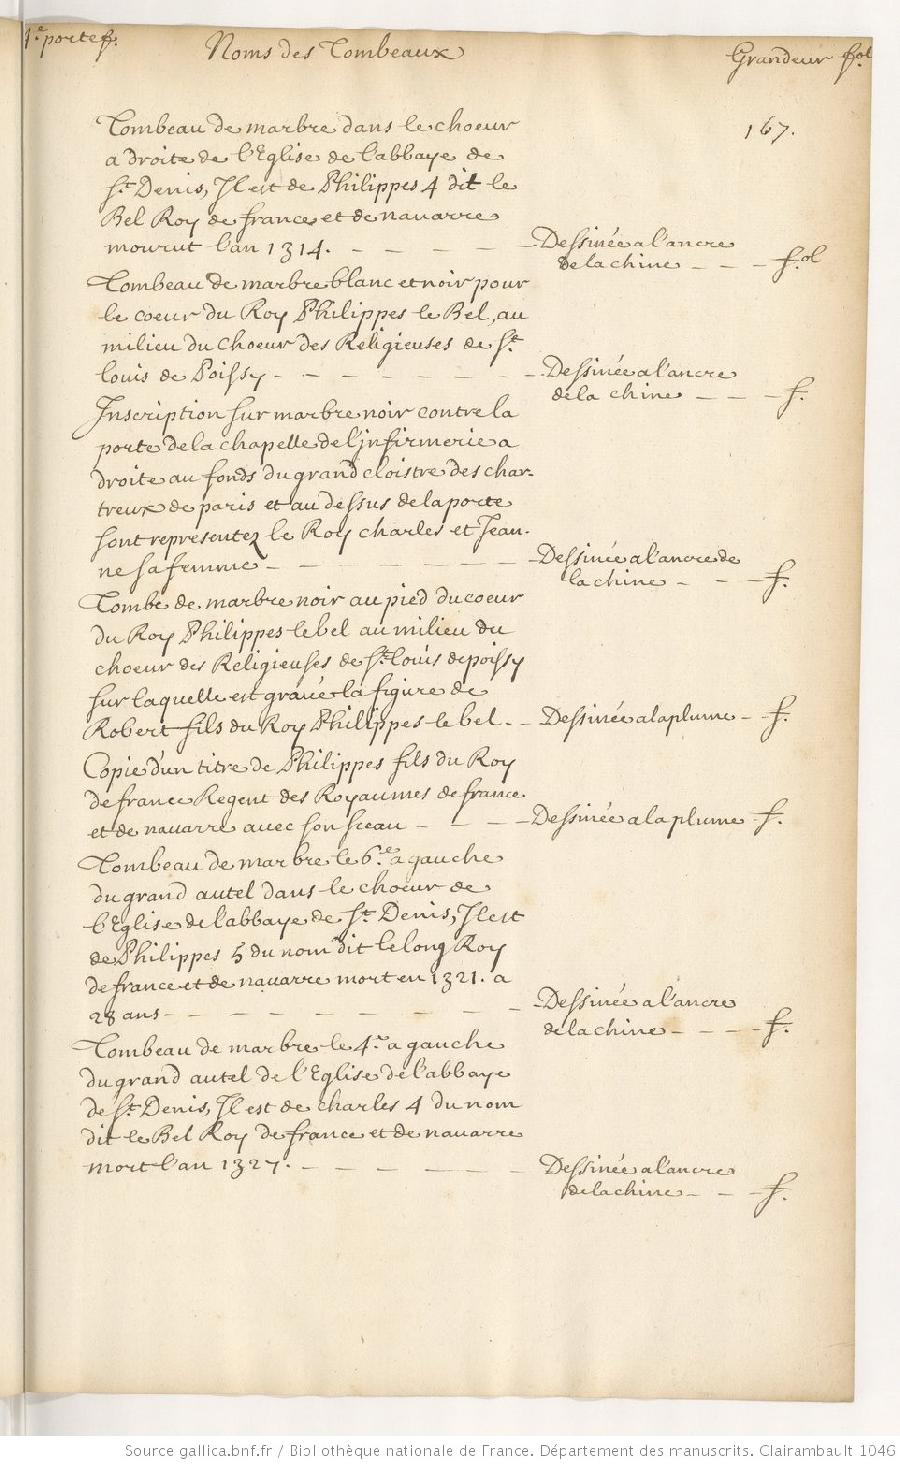 1.e portef. Noms des Tombeaux Grandeur fol
167.
Tombeau de marbre dans le choeur
a droite de l'Eglise de l'abbaye de
St. Denis, Il est de Philippes 4 dit le
Bel Roy de france et de nauarre
mourut l'an 1314. — — — — — Dessinée a l'ancre
de la chine — — — f.ol
Tombeau de marbre blanc et noir pour
le coeur du Roy Philippes le Bel, au
milieu du Choeur des Religieuses de St.
louis de Poissy — — — — — — — Dessinée a l'ancre
de la chine — — — f.
Inscription sur marbre noir contre la
porte de la chapelle de l'jnfirmerie a
droite au fonds du grand cloistre des char-
treux de paris et au dessus de la porte
sont representez le Roy charles et Jean-
ne sa femme — — — — — — — Dessinée a l'ancre de
la chine — — — f.
Tombe de marbre noir au pied du coeur
du Roy Philippes le bel au milieu du
choeur des Religieuses de St. louis de poissy
sur laquelle est grauée la figure de
Robert fils du Roy Philippes le bel. — Dessinée a la plume — f.
Copie d'un titre de Philippes fils du Roy
de france Regent des Royaumes de france
et de nauarre auec son sceau — — — — Dessinée a la plume f.
Tombeau de marbre le 6.e a gauche
du grand autel dans le choeur de
l'Eglise de l'abbaye de St. Denis, Il est
de Philippes 5 du nom dit le long Roy
de france et de nauarre mort en 1321. a
28 ans — — — — — — — — Dessinée a l'ancre
de la chine — — — — f.
Tombeau de marbre le 4.e a gauche
du grand autel de l'Eglise de l'abbaye
de St. Denis, Il est de charles 4 du nom
dit le Bel Roy de france et de nauarre
mort l'an 1327. — — — — — — Dessinée a l'ancre
de la chine — — — f.
Source gallica.bnf.fr / Bibliothèque nationale de France. Département des manuscrits. Clairambault 1046